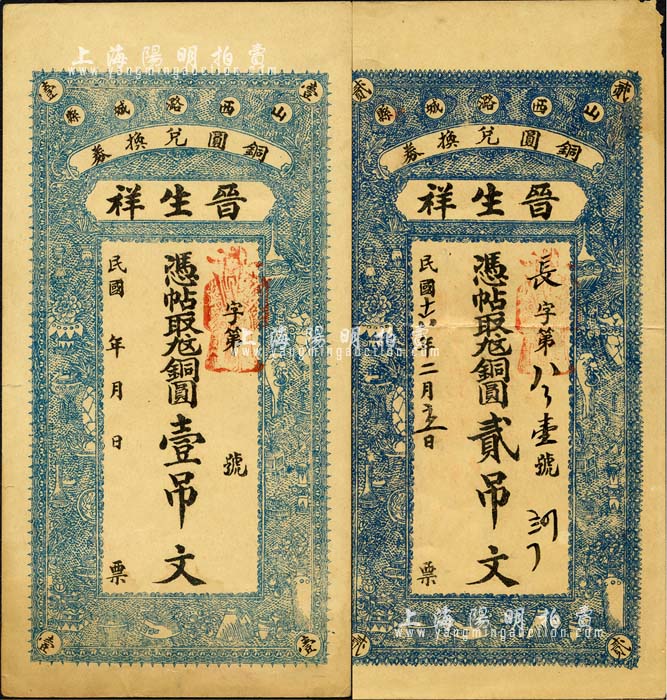 上海陽明拍賣
www.yangmingauction.com
壹 壹
山西潞城縣
銅圓兌換券
晉生祥
字第 號
憑帖取兌銅圓壹吊文
民國 年 月 日
票
壹 壹
貳 貳
山西潞城縣
銅圓兌換券
晉生祥
長字第 壹號
憑帖取兌銅圓貳吊文
民國十 年二月 日
票
貳 貳
上海陽明拍賣
www.yangmingauction.com
上海陽明拍賣
www.yangmingauction.com